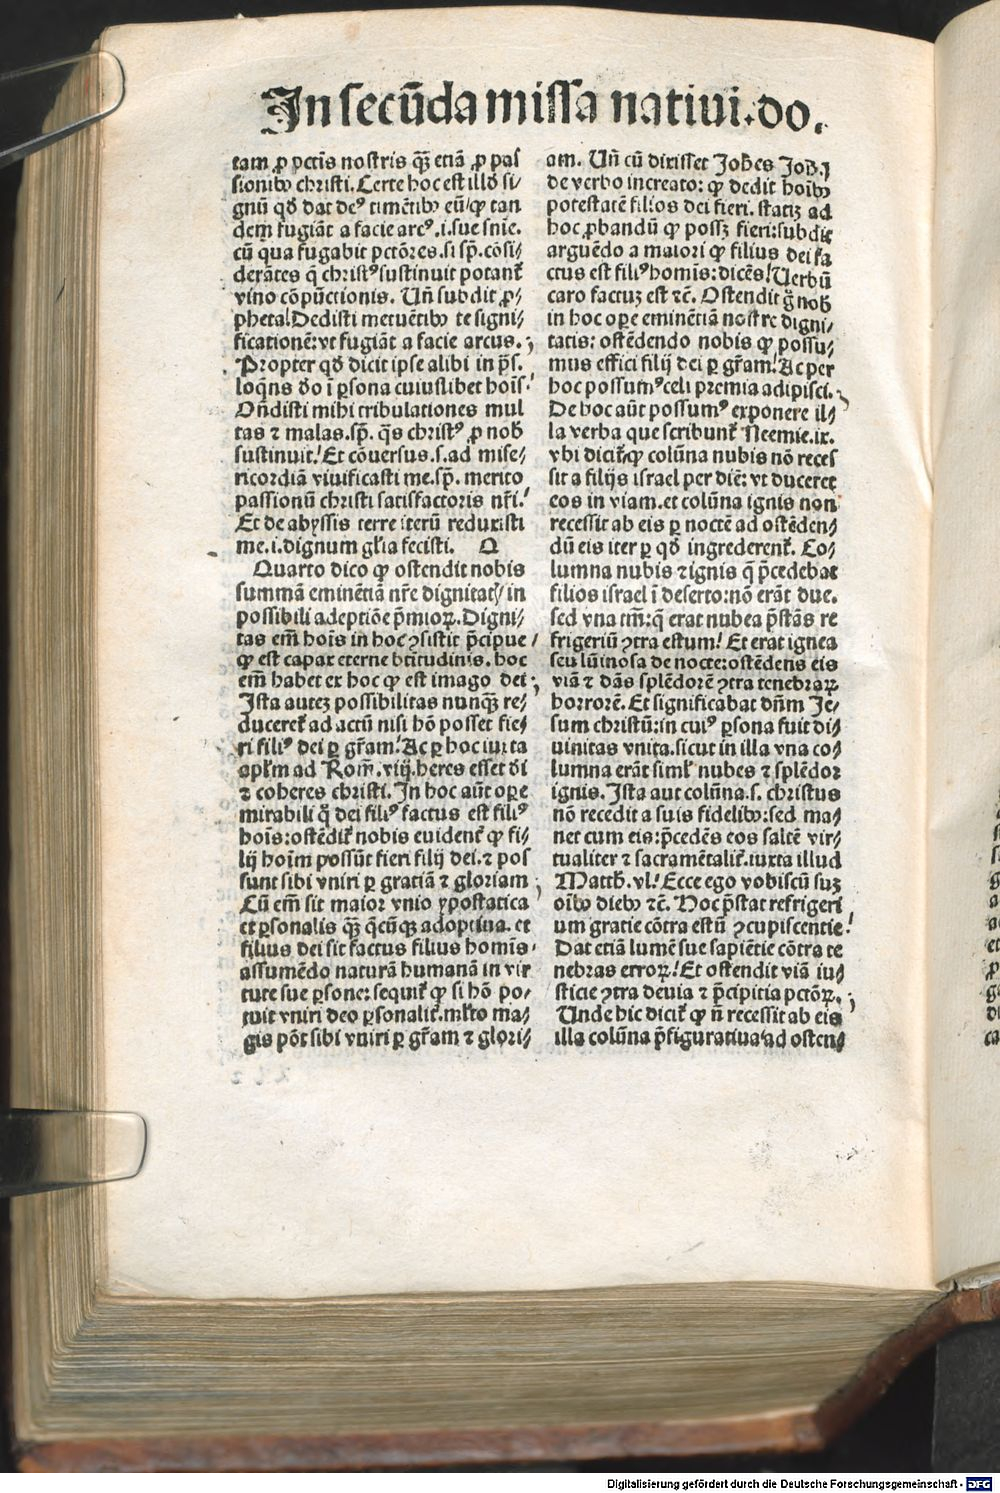 In secūda missa natiui.do.
tam ꝓ pctīs nostris qꝫ̄ etiā ꝓ pas
sionibꝰ christi. Certe hoc est illđ si⸗
gnū qđ dat deꝰ timētibꝰ eū/ ꝙ tan
dem fugiāt a facie arcꝰ.i.sue snīe.
cū qua fugabit pctōres.si sp̄. cōsi⸗
derātes q̄ christꝰ sustinuit potant̄
vino cōpūctionis. Un̄ subdit ꝓ⸗
pheta! Dedisti metuētibꝰ te signi⸗
ficationē: vt fugiāt a facie arcus.
Propter qđ dicit ipse alibi in p̄s.
loqn̄s đo ī ꝑsona cuiuslibet hoīs!
On̄disti mihi tribulationes mul
tas ⁊ malas.sp̄. q̄s christꝰ ꝓ nob̄
sustinuit! Et cōuersus.s.ad mise⸗
ricordiā viuificasti me.sp̄. merito
passionū christi satisfactoris nr̄i!
Et de abyssis terre iterū reduxisti
me.i.dignum gl̄ia fecisti. Q
Quarto dico ꝙ ostendit nobis
summā eminētiā nr̄e dignitatꝭ/ in
possibili adeptiōe p̄mioꝝ. Digni⸗
tas em̄ hoīs in hoc ꝯsistit p̄cipue/
ꝙ est capax eterne btītudinis. hoc
em̄ habet ex hoc ꝙ est imago dei:
Ista autez possibilitas nunqꝫ̄ re⸗
duceret̄ ad actū nisi hō posset fie⸗
ri filiꝰ dei ꝑ gr̄am! Ac ꝑ hoc iuxta
apl̄m ad Rom̄.viij.heres esset đi
⁊ coheres christi. In hoc aūt oꝑe
mirabili ꝙ̄ dei filiꝰ factus est filiꝰ
hoīs: ostēdit̄ nobis euident̄ ꝙ fi⸗
lij hoīm possūt fieri filij dei.⁊ pos
sunt sibi vniri ꝑ gratiā ⁊ gloriam
Cū em̄ sit maior vnio ypostatica
et ꝑsonalis qꝫ̄ q̄cūqꝫ adoptiua. et
filius dei sit factus filius homīs
assumēdo naturā humanā in vir
tute sue ꝑsone: sequit̄ ꝙ si hō po⸗
tuit vniri deo ꝑsonalit̄.ml̄to ma⸗
gis pōt sibi vniri ꝑ gr̄am ⁊ glori⸗
am. Un̄ cū dixisset Joh̄es Joh̄.j
de verbo increato: ꝙ dedit hoībꝰ
potestatē filios dei fieri. statiꝫ ad
hoc ꝓbandū ꝙ possꝫ fieri: subdit
arguēdo a maiori ꝙ filius dei fa
ctus est filiꝰ homīs: dicēs! Uerbū
caro factuꝫ est ⁊c. Ostendit g̊ nob̄
in hoc oꝑe eminētiā nostre digni⸗
tatis: ostēdendo nobis ꝙ possu⸗
mus effici filij dei ꝑ gr̄am! Ac per
hoc possumꝰ celi premia adipisci.
De hoc aūt possumꝰ exponere il⸗
la verba que scribunt̄ Neemie.ix.
vbi dicit̄ ꝙ colūna nubis nō reces
sit a filijs israel per diē: vt duceret
eos in viam.et colūna ignis non
recessit ab eis ꝑ noctē ad ostēden⸗
dū eis iter ꝑ qđ ingrederent̄. Co⸗
lumna nubis ⁊ ignis q̄ p̄cedebat
filios israel ī deserto: nō erāt due.
sed vna tm̄: q̄ erat nubea p̄stās re
frigeriū ꝯtra estum! Et erat ignea
seu lūinosa de nocte: ostēdens eis
viā ⁊ dās splēdorē ꝯtra tenebraꝝ
horrorē. Et significabat dn̄m Je⸗
sum christū: in cuiꝰ ꝑsona fuit di⸗
uinitas vnita.sicut in illa vna co⸗
lumna erāt siml̄ nubes ⁊ splēdor
ignis. Ista aut colūna.s. christus
nō recedit a suis fidelibꝰ: sed ma⸗
net cum eis: p̄cedēs eos saltē vir⸗
tualiter ⁊ sacramētalit̄.iuxta illud
Matth̄. vl.! Ecce ego vobiscū suꝫ
oībꝰ diebꝰ ⁊c. Hoc p̄stat refrigeri
um gratie cōtra estū ꝯcupiscentie!
Dat etiā lumē sue sapiētie cōtra te
nebras erroꝝ! Et ostendit viā iu⸗
sticie ꝯtra deuia ⁊ p̄cipitia pctōꝝ.
Unde hic dicit̄ ꝙ n̄ recessit ab eis
illa colūna p̄figuratiua/ ad osten⸗
Digitalisierung gefördert durch die Deutsche Forschungsgemeinschaft - DFG